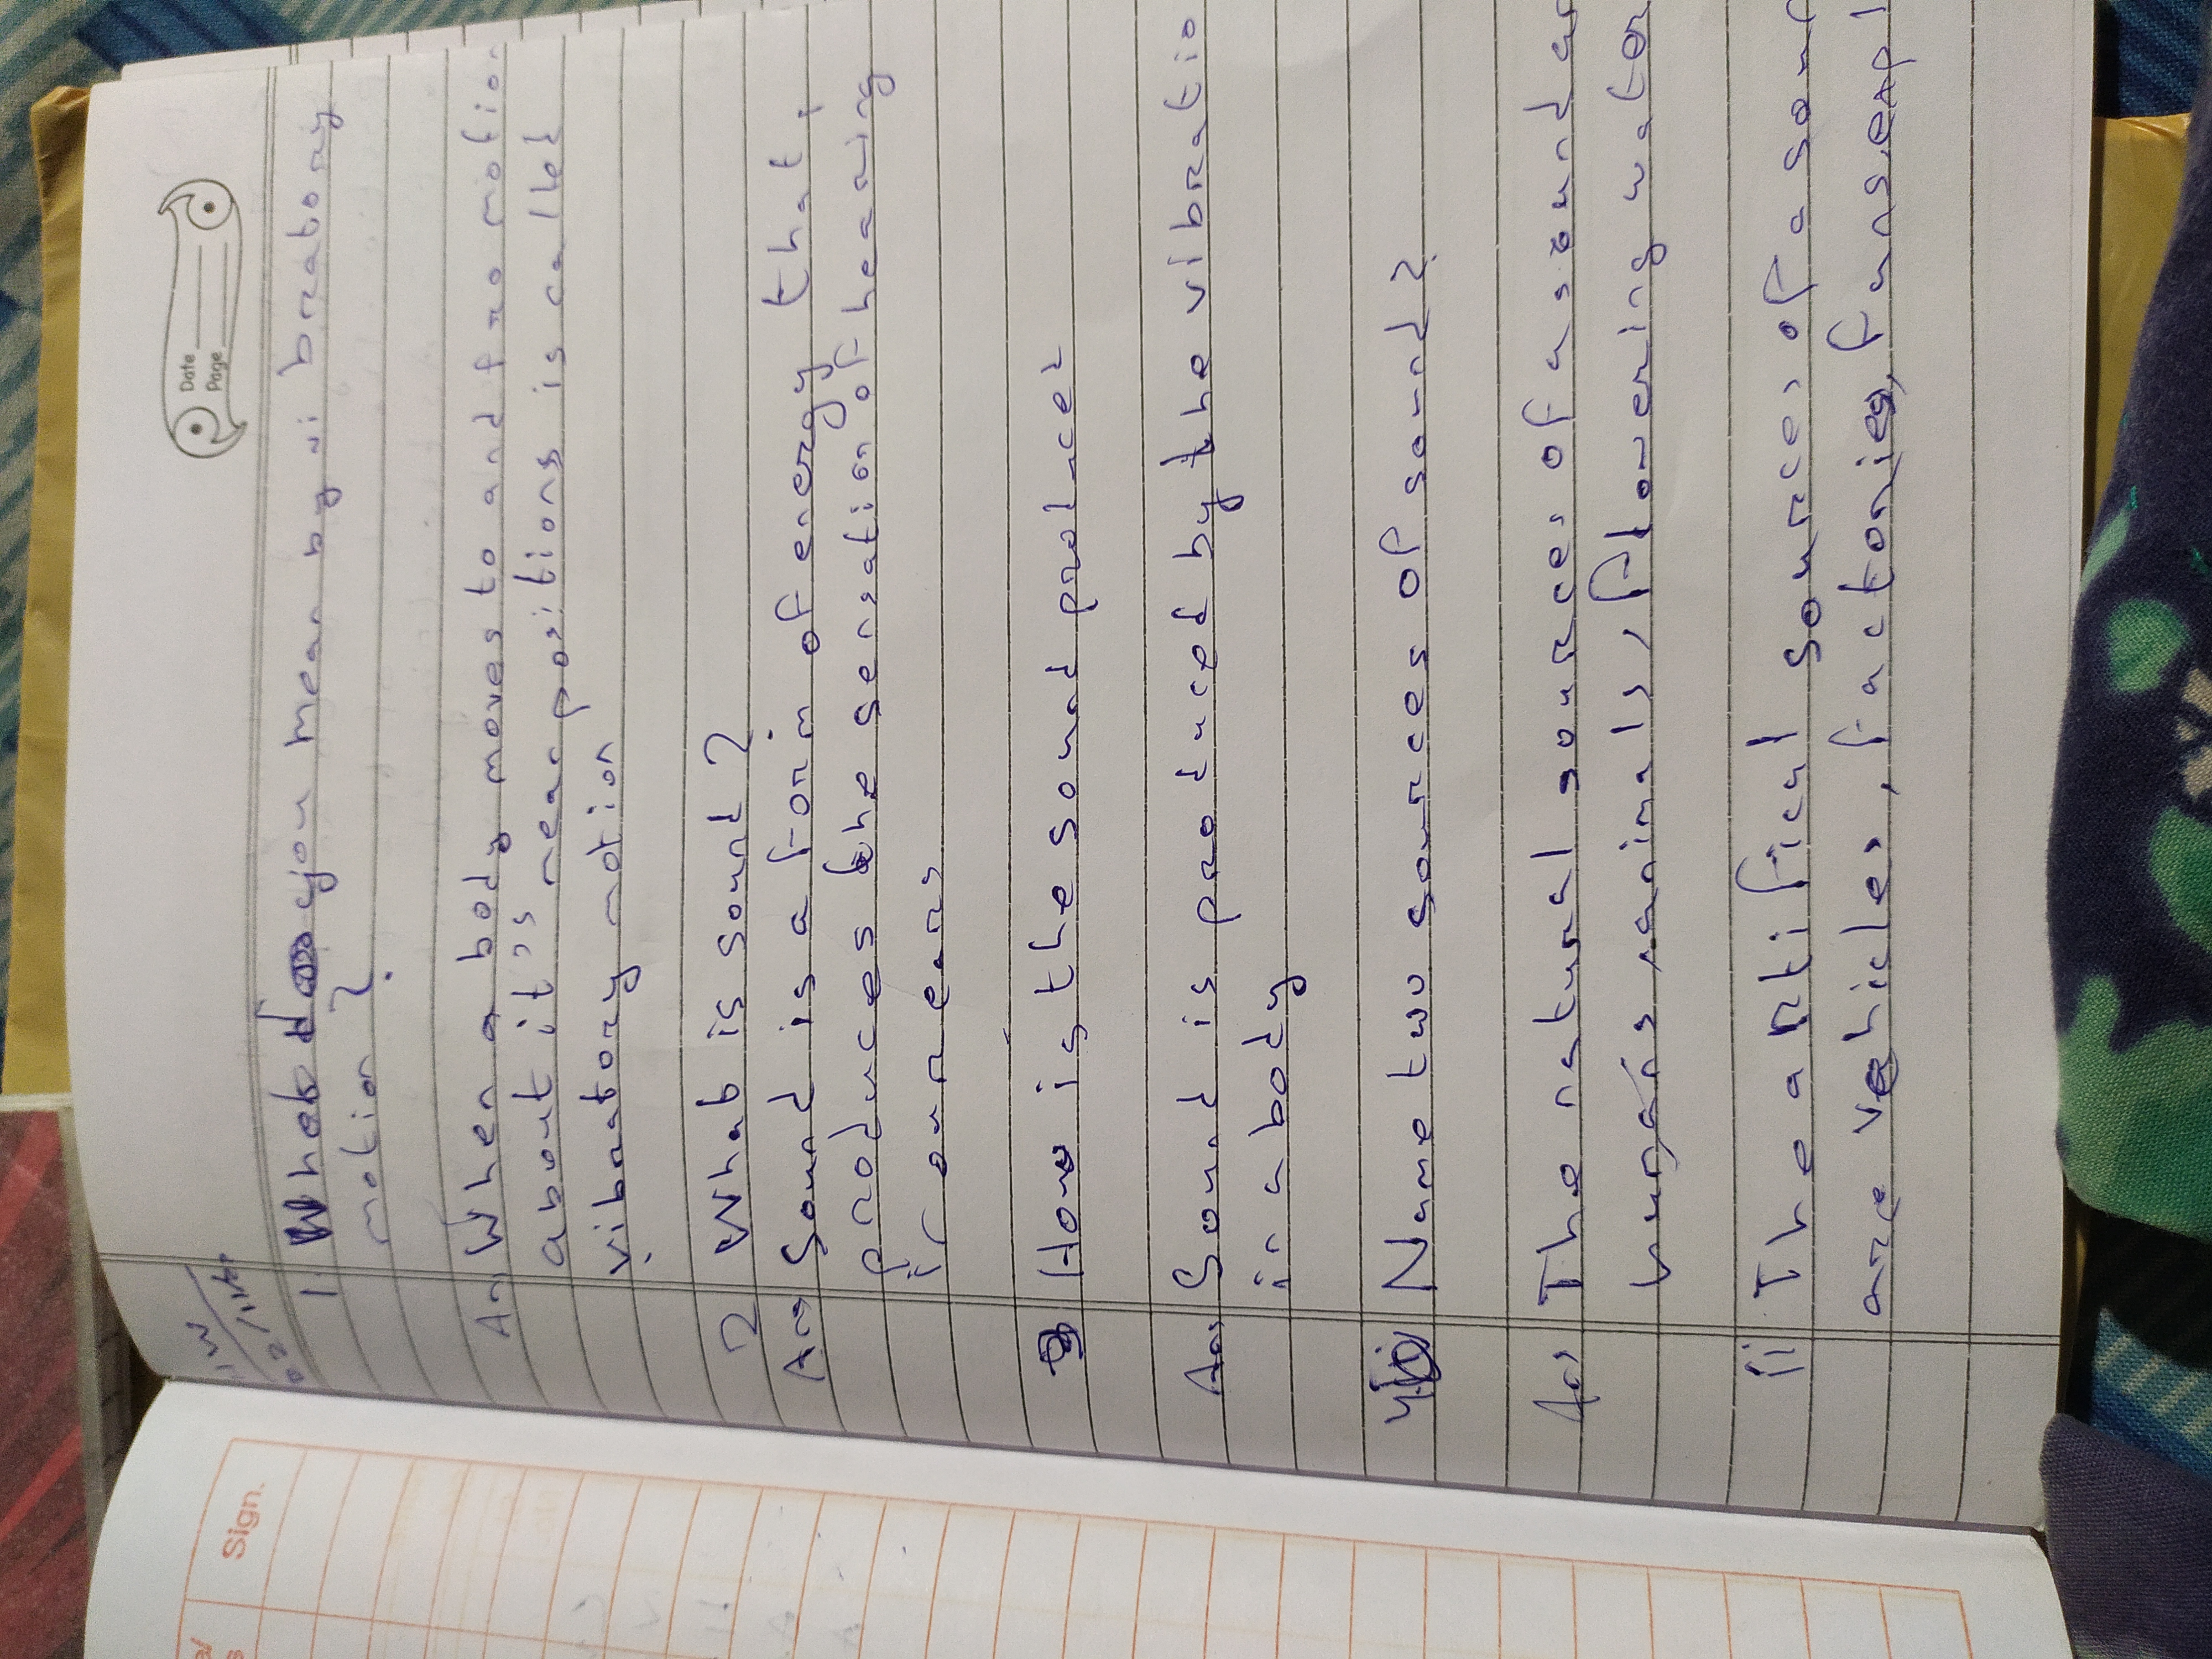 Date
Page
H.W
1. What do you mean by vi bratory
motion ?
Ans When a body moves to and fro motion
about it's mean positions is called
vibratory motion
2 What is sound ?
Ans Sound is a form of energy that
produces the sensation of hearing
in our ears
3 How is the sound produces
Ans Sound is produced by the vibratio
in a body
4 Name two sources of sound?
Ans The natural sources of a sound ar
humans, animals, flowering water
ii The artifical sources of a soun
are vehicles, factories, funs,
Sign.